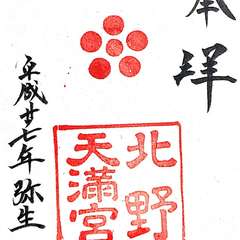 奉拝
北野
天満宮
平成廿七年弥生